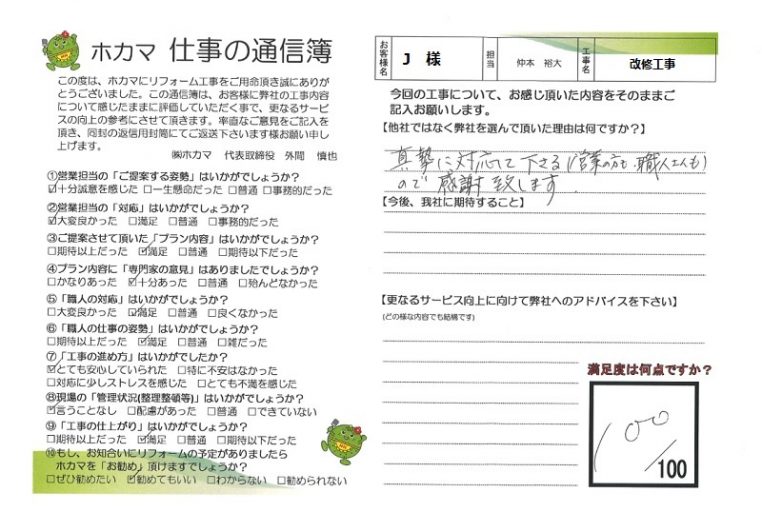 ホカマ 仕事の通信簿
この度は、ホカマにリフォーム工事をご用命頂き誠にありが
とうございました。この通信簿は、お客様に弊社の工事内容
について感じたままに評価していただく事で、更なるサービ
スの向上の参考にさせて頂きます。率直なご意見をご記入を
頂き、同封の返信用封筒にてご返送下さいます様お願い申し
上げます。
㈱ホカマ 代表取締役 外間 慎也
①営業担当の「ご提案する姿勢」はいかがでしょうか?
☑十分誠意を感じた □一生懸命だった □普通 □事務的だった
②営業担当の「対応」はいかがでしょうか?
☑大変良かった □満足 □普通 □事務的だった
③ご提案させて頂いた「プラン内容」はいかがでしょうか?
□期待以上だった ☑満足 □普通 □期待以下だった
④プラン内容に「専門家の意見」はありましたでしょうか?
□かなりあった ☑十分あった □普通 □殆んどなかった
⑤「職人の対応」はいかがでしょうか?
□大変良かった ☑満足 □普通 □良くなかった
⑥「職人の仕事の姿勢」はいかがでしょうか?
□期待以上だった ☑満足 □普通 □雑だった
⑦「工事の進め方」はいかがでしたか?
☑とても安心していられた □特に不安はなかった
□対応に少しストレスを感じた □とても不満を感じた
⑧現場の「管理状況(整理整頓等)」はいかがでしょうか?
☑言うことなし □配慮があった □普通 □できていない
⑨「工事の仕上がり」はいかがでしょうか?
□期待以上だった ☑満足 □普通 □期待以下だった
⑩もし、お知合いにリフォームの予定がありましたら
ホカマを「お勧め」頂けますでしょうか?
□ぜひ勧めたい ☑勧めてもいい □わからない □勧められない
お客様名 J 様 担当 仲本 裕大 工事名 改修工事
今回の工事について、お感じ頂いた内容をそのままご
記入お願いします。
【他社ではなく弊社を選んで頂いた理由は何ですか?】
真摯に対応して下さる(営業の方も、職人さんも)
ので感謝致します
【今後、我社に期待すること】
【更なるサービス向上に向けて弊社へのアドバイスを下さい】
(どの様な内容でも結構です)
満足度は何点ですか?
100
/100